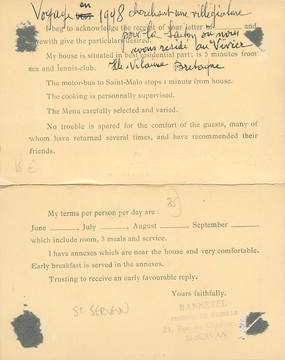 Voyage en 1928 cherchant une villégiature
I beg to acknowledge the receipt of your letter and
pour la saison ou nous
herewith give the particulars desired.
avons residé au Vivier
My house is situated in best residential part: is 5 minutes from
sea and tennis-club. Ille Vilaine Bretagne
The motor-bus to Saint-Malo stops 1 minute from house.
The cooking is personnally supervised.
The Menu carefully selected and varied.
No trouble is spared for the comfort of the guests, many of
whom have returned several times, and have recommended their
friends.
My terms per person per day are :
35)
June ______, July ______, August ______, September ______
which include room, 3 meals and service.
I have annexes which are near the house and very comfortable.
Early breakfast is served in the annexes.
Trusting to receive an early favourable reply.
Yours faithfully,
St SERVAN